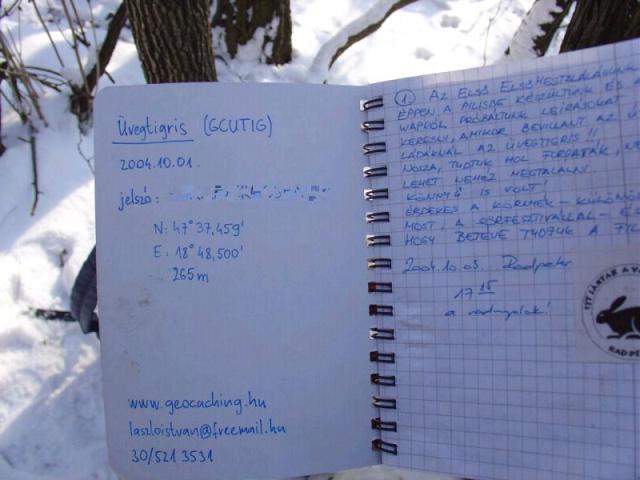 Üvegtigris (GCUTIG)
2004.10.01.
jelszó:
N: 47° 37,459'
E: 18° 48,500'
265 m
www.geocaching.hu
laszloistvan@freemail.hu
30/521 3531
1. AZ ELSŐ ELSŐMEGTALÁLÁSUNK
ÉPPEN A PILISBE KÉSZÜLTÜNK ÉS
WAPRÓL PRÓBÁLTUNK LEÍRÁSOKAT
KERESNI, AMIKOR BEVILLANT AZ Ú
LÁDÁKNÁL AZ ÜVEGTIGRIS !!
NOSZA, TUDTUK HOL FORGATÁK, NE
LEHET NEHÉZ MEGTALÁLNI.
KÖNNYŰ IS VOLT!
ÉRDEKES A KÖRNYÉK - KÜLÖNÖ
MOST, A SÖRFESZTIVÁLLAL -
HOGY BETÉVE TUDJUK A FIL
2004.10.03. Radpeter
17 15
a radnyulak!
ITT JÁRTAK A
RADPE